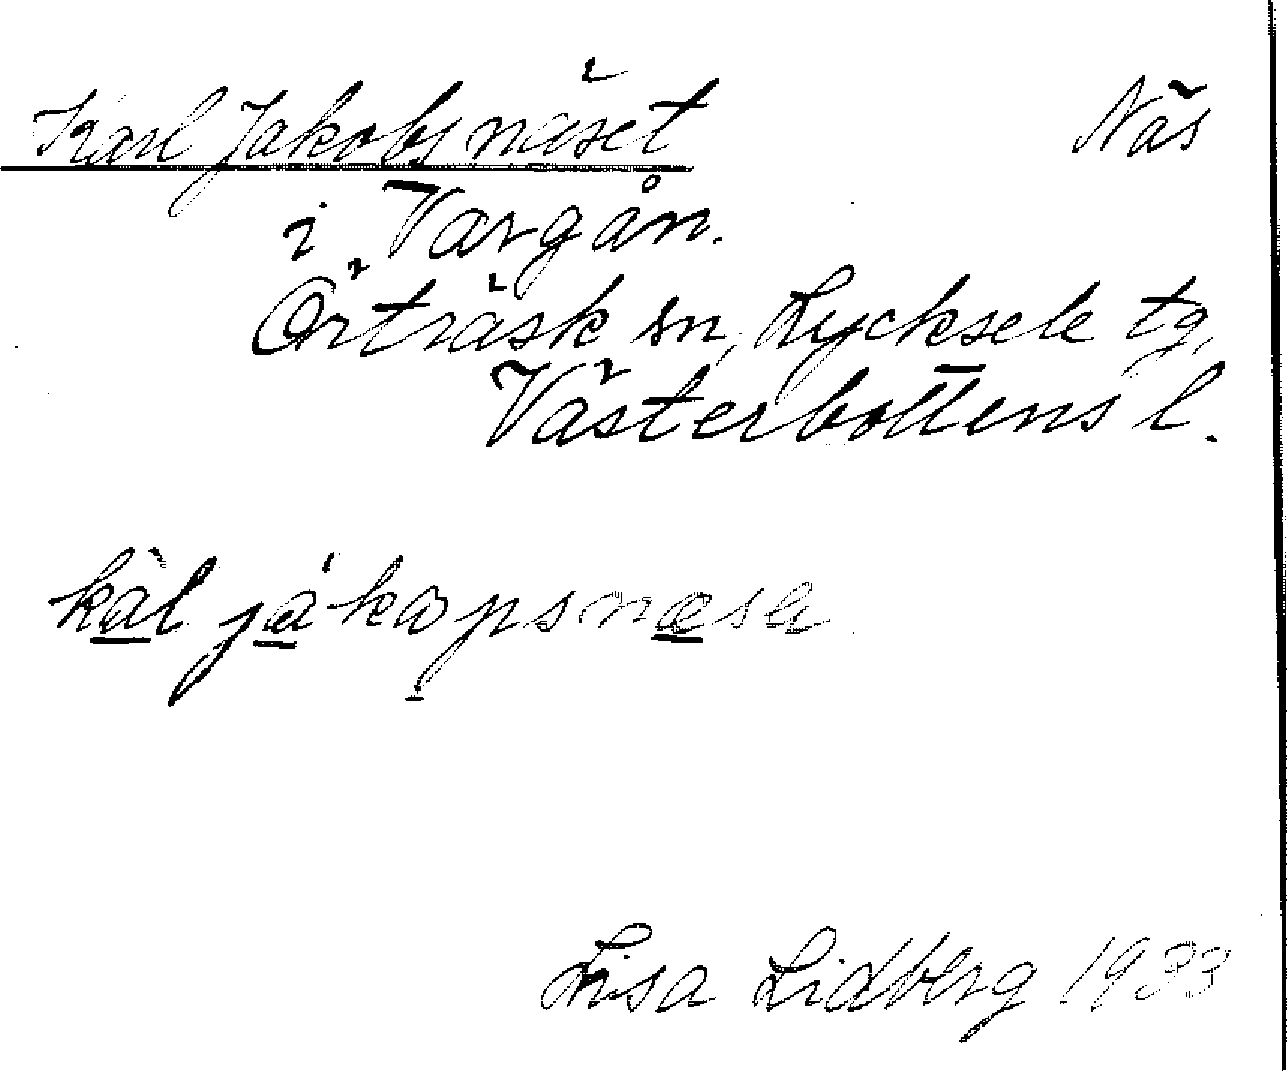 Karl Jakobsnäset Näs
i Vargån.
Örträsk sn, Lycksele tg,
Västerbottens l.
kàl já·kopsnæsa
Lisa Lidberg 1933